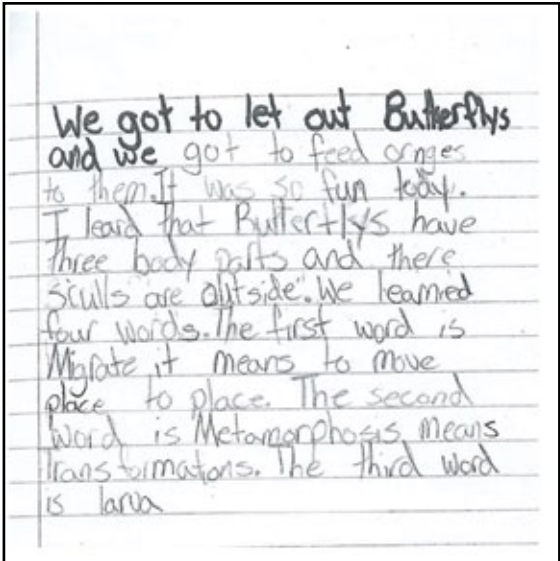 We got to let out Butterflys
and we got to feed ornges
to them. It was so fun today.
I leard that Butterflys have
three body parts and there
sculls are outside". We learned
four words. The first word is
Migrate it means to move
place to place. The second
word is Metamorphosis means
Transformations. The third word
is larva